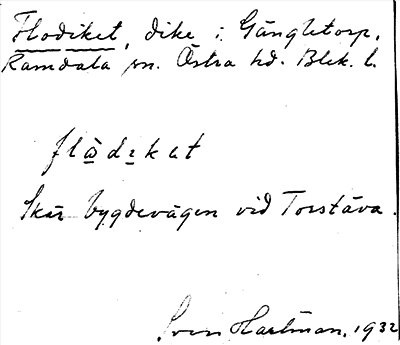 Flodiket, dike i Gängletorp,
Ramdala sn. Östra hd. Blek. l.
flωdɩkat
Skär bygdevägen vid Torstäva.
Sven Hartman. 1932